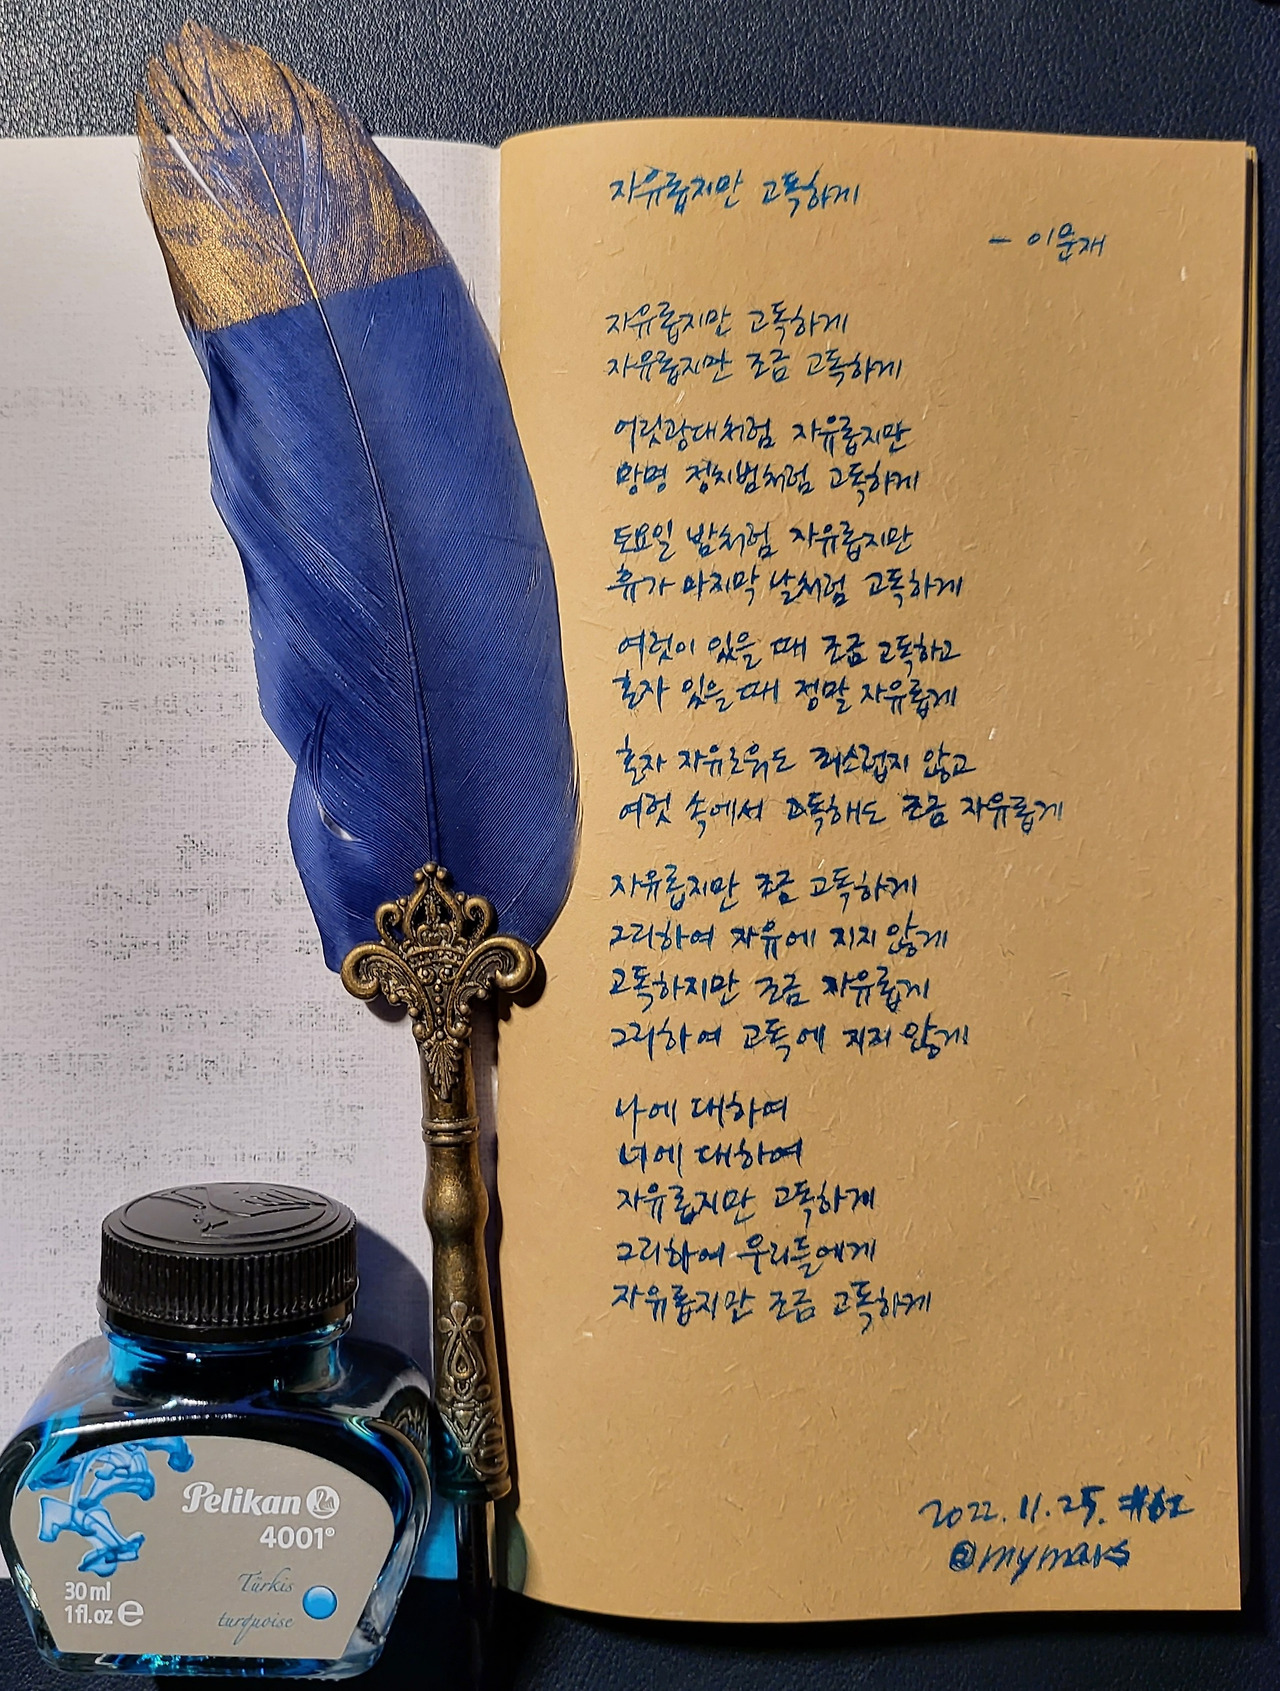 자유롭지만 고독하게
- 이문재
자유롭지만 고독하게
자유롭지만 조금 고독하게
어릿광대처럼 자유롭지만
망명 정치범처럼 고독하게
토요일 밤처럼 자유롭지만
휴가 마지막 날처럼 고독하게
여럿이 있을 때 조금 고독하고
혼자 있을 때 정말 자유롭게
혼자 자유로워도 죄스럽지 않고
여럿 속에서 고독해도 조금 자유롭게
자유롭지만 조금 고독하게
그리하여 자유에 지지 않게
고독하지만 조금 자유롭게
그리하여 고독에 지지 않게
나에 대하여
너에 대하여
자유롭지만 고독하게
그리하여 우리들에게
자유롭지만 조금 고독하게
2022. 11. 25. #62
@mymars
Pelikan
4001®
Türkis
turquoise
30 ml
1 fl.oz e